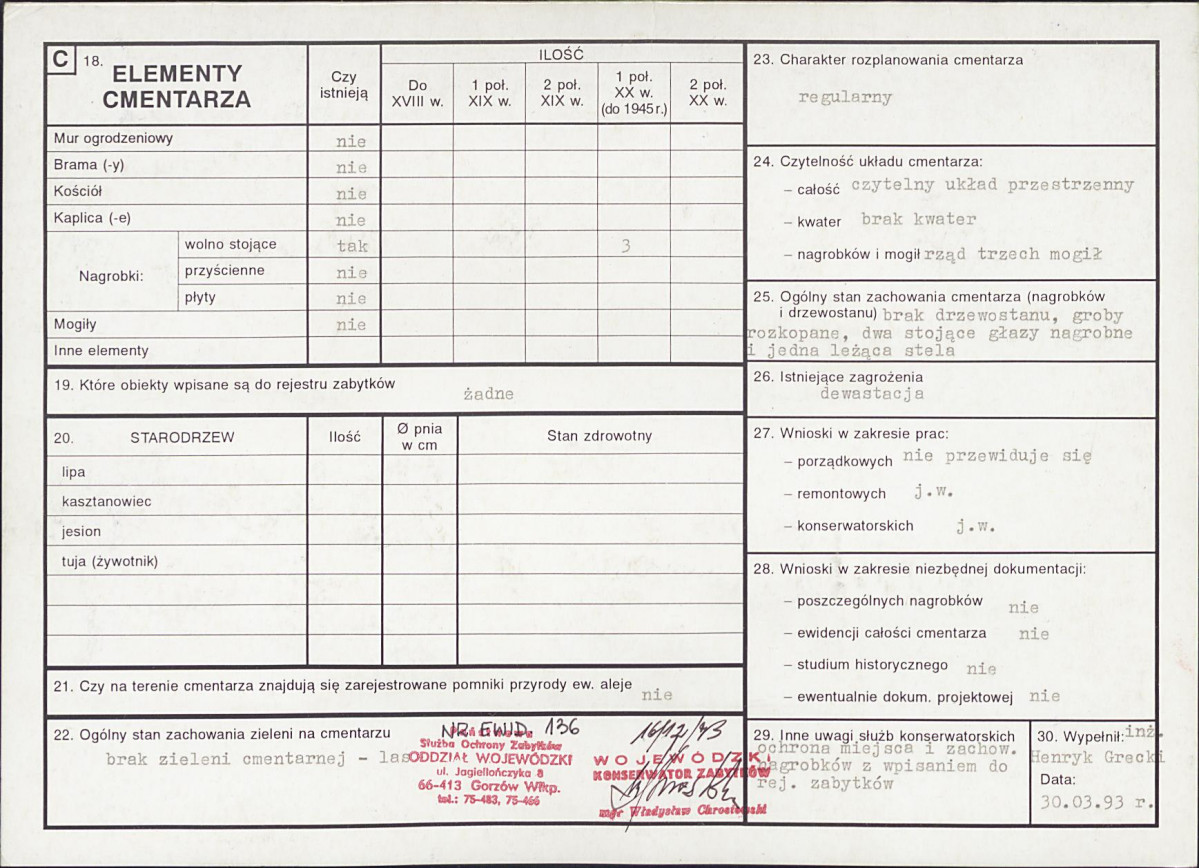 C 18. ELEMENTY CMENTARZA
Czy istnieją
ILOŚĆ
Do XVIII w.
1 poł. XIX w.
2 poł. XIX w.
1 poł. XX w. (do 1945 r.)
2 poł. XX w.
Mur ogrodzeniowy nie
Brama (-y) nie
Kościół nie
Kaplica (-e) nie
Nagrobki:
wolno stojące tak 3
przyścienne nie
płyty nie
Mogiły nie
Inne elementy
19. Które obiekty wpisane są do rejestru zabytków żadne
20. STARODRZEW Ilość Ø pnia w cm Stan zdrowotny
lipa
kasztanowiec
jesion
tuja (żywotnik)
21. Czy na terenie cmentarza znajdują się zarejestrowane pomniki przyrody ew. aleje nie
22. Ogólny stan zachowania zieleni na cmentarzu
brak zieleni cmentarnej - las
NR EWID. 136
Służba Ochrony Zabytków
ODDZIAŁ WOJEWÓDZKI
ul. Jagiellończyka 8
66-413 Gorzów Wlkp.
tel.: 75-483, 75-466
WOJEWÓDZKI
KONSERWATOR ZABYTKÓW
mgr Władysław Chrostowski
23. Charakter rozplanowania cmentarza
regularny
24. Czytelność układu cmentarza:
– całość czytelny układ przestrzenny
– kwater brak kwater
– nagrobków i mogił rząd trzech mogił
25. Ogólny stan zachowania cmentarza (nagrobków
i drzewostanu) brak drzewostanu, groby
rozkopane, dwa stojące głazy nagrobne
i jedna leżąca stela
26. Istniejące zagrożenia
dewastacja
27. Wnioski w zakresie prac:
– porządkowych nie przewiduje się
– remontowych j.w.
– konserwatorskich j.w.
28. Wnioski w zakresie niezbędnej dokumentacji:
– poszczególnych nagrobków nie
– ewidencji całości cmentarza nie
– studium historycznego nie
– ewentualnie dokum. projektowej nie
29. Inne uwagi służb konserwatorskich
ochrona miejsca i zachow.
nagrobków z wpisaniem do
rej. zabytków
30. Wypełnił: inż.
Henryk Grecki
Data:
30.03.93 r.